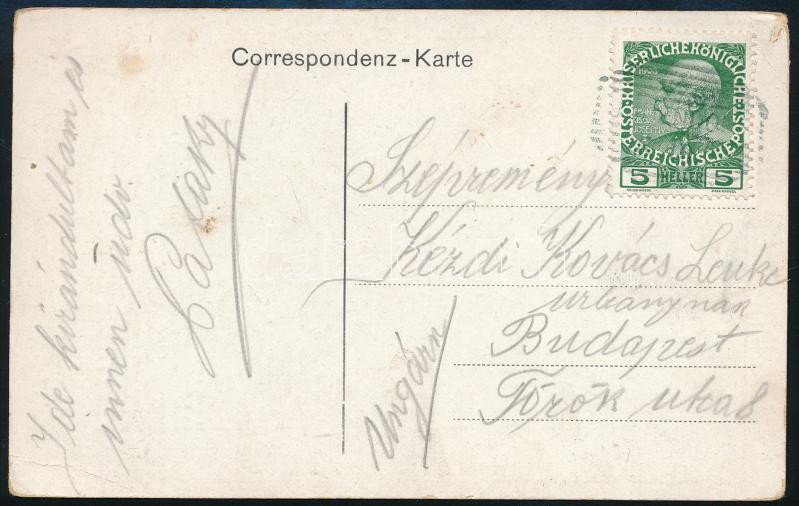 Correspondenz-Karte
KAISERLICHE KÖNIGLICHE
ÖSTERREICHISCHE POST
5 HELLER 5
Ide kirándultam és
innen üdv.
Pataky
Szépreményű
Kézdi Kovács Lenke
urleánynak
Budapest
Török utca 8
Ungarn